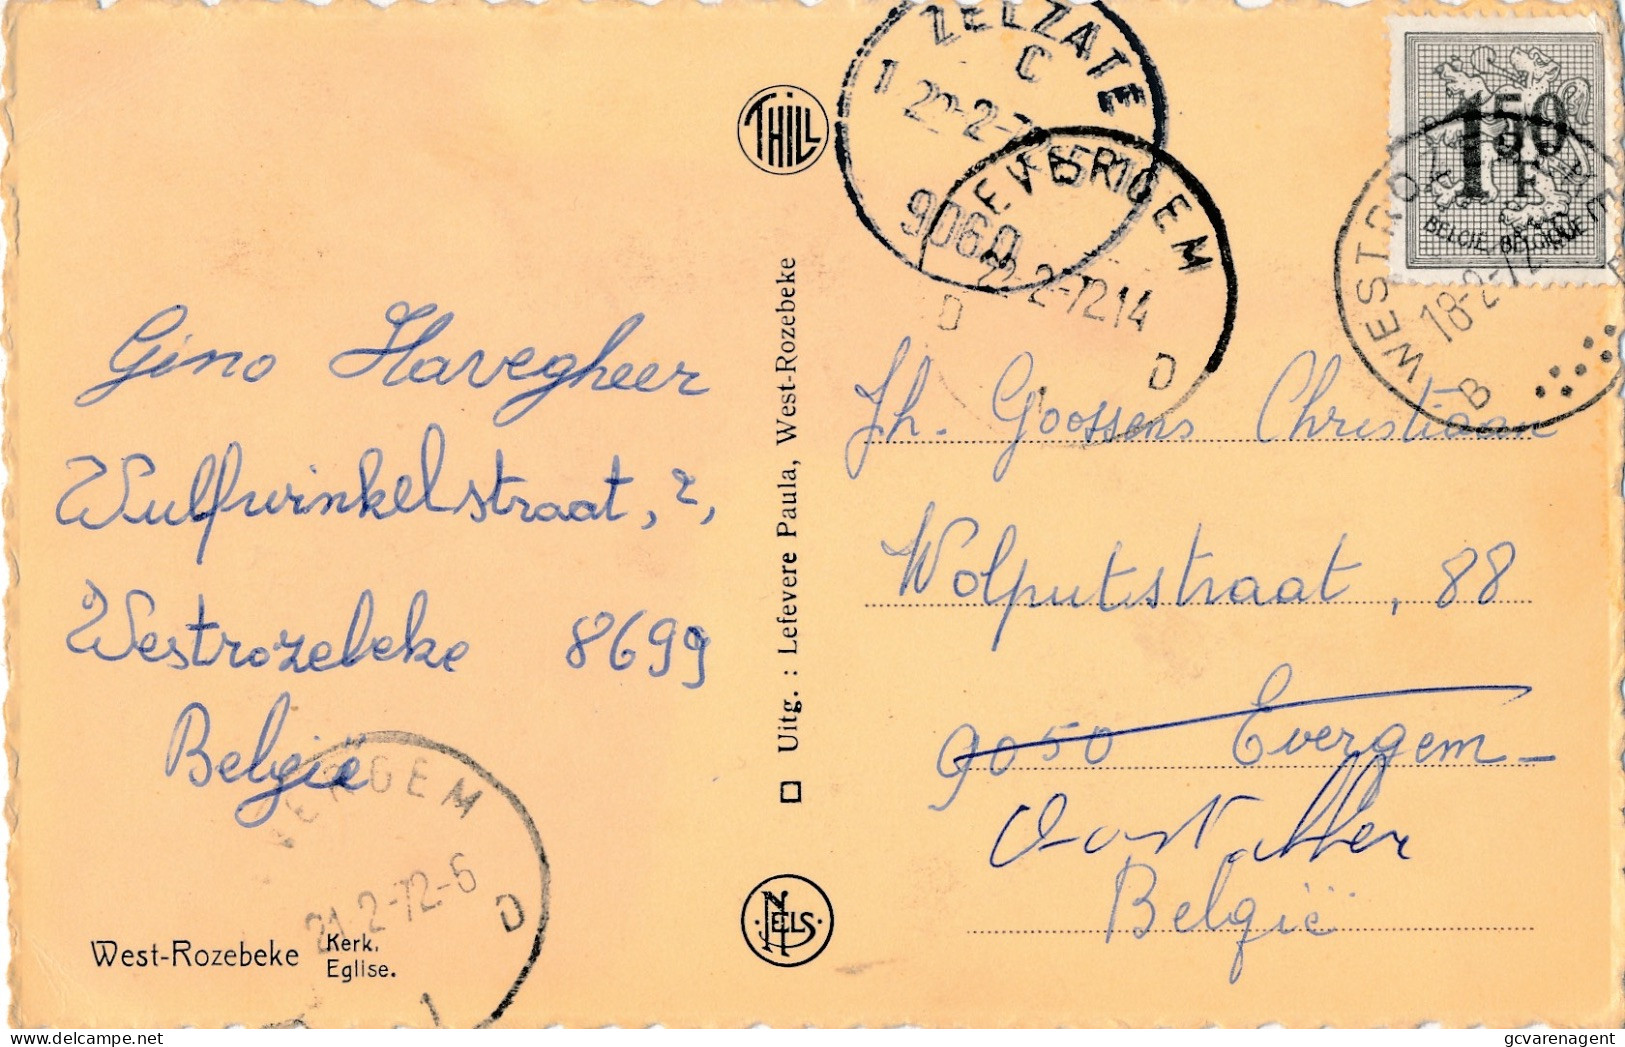 Gino Havegheer
Wulfwinkelstraat, 2,
Westrozebeke 8699
België
VERGEM
21-2-72-6
D
1
West-Rozebeke Kerk.
Eglise.
THILL
Uitg. : Lefevere Paula, West-Rozebeke
NELS
ZELZATE
C
1 22-2-72
9060
EVERGEM
22-2-72 14
D D
1
1 50
F
BELGIË/BELGIQUE
WESTRO
18-2-72
B
Jh. Goossens Christiaan
Wolputstraat, 88
9050 Evergem
Oostakker
België
www.delcampe.net
gcvarenagent